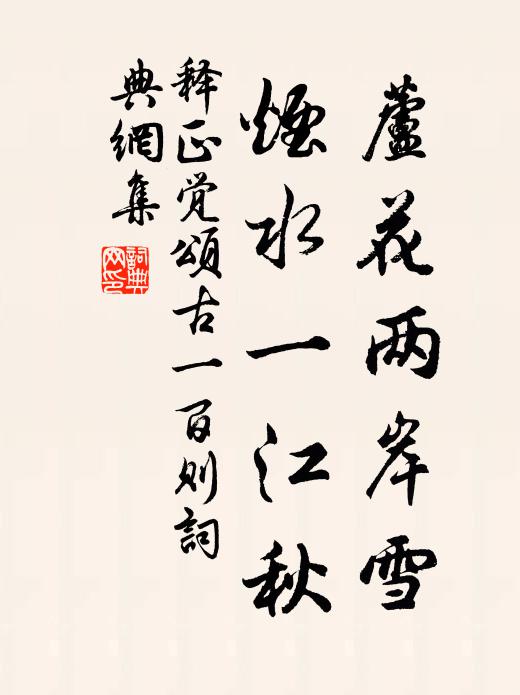 蘆花两岸雪
煙水一江秋
释正觉頌古一百则詞
典網集
詞典
网印